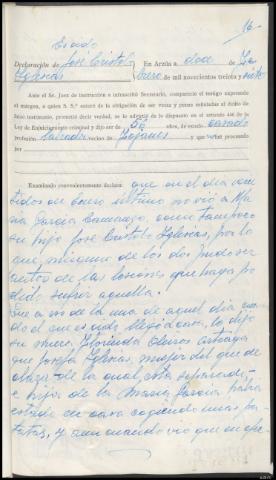 16-
Declaración de José Cristobo Iglesias
En Arzúa a doce de
de mil novecientos treinta y siete
Ante el Sr. Juez de instrucción e infrascrito Secretario, comparece el testigo expresado
al margen, a quien S. S.ª enteró de la obligación de ser veraz y penas señaladas al delito de
falso testimonio, prometió decir verdad, se le advirtió de lo dispuesto en el artículo 446 de la
Ley de Enjuiciamiento criminal y dijo ser de 56 años, de estado casado
profesión labrador vecino de y que procesado
por
Examinado convenientemente declara: que en el día vein
tidos de Enero último no vio a Ma
ria Garcia ni tampoco
su hijo José Cristobo Iglesias, por lo
que ninguno de los dos pudo ser
autor de las lesiones que haya po
dido sufrir aquella.
Que a eso de la una de aquel día cuan
do el que es llegó a casa, le dijo
su nuera Florinda
que Josefa Iglesias, mujer del que de
clara de la cual esta separado,
e hija de la Maria Garcia había
estado en casa cogiendo unas pa
tatas, y aun cuando vio que en